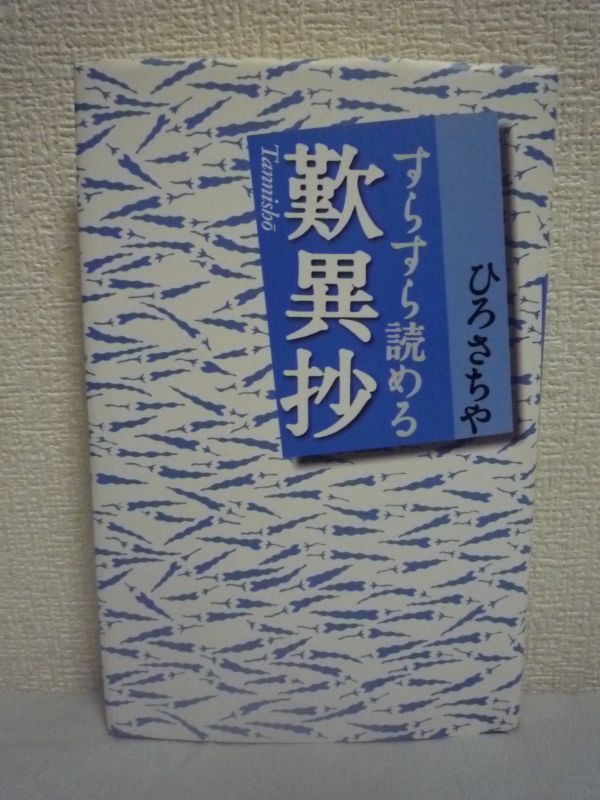 ひろさちや
すらすら読める
歎異抄
Tannishō